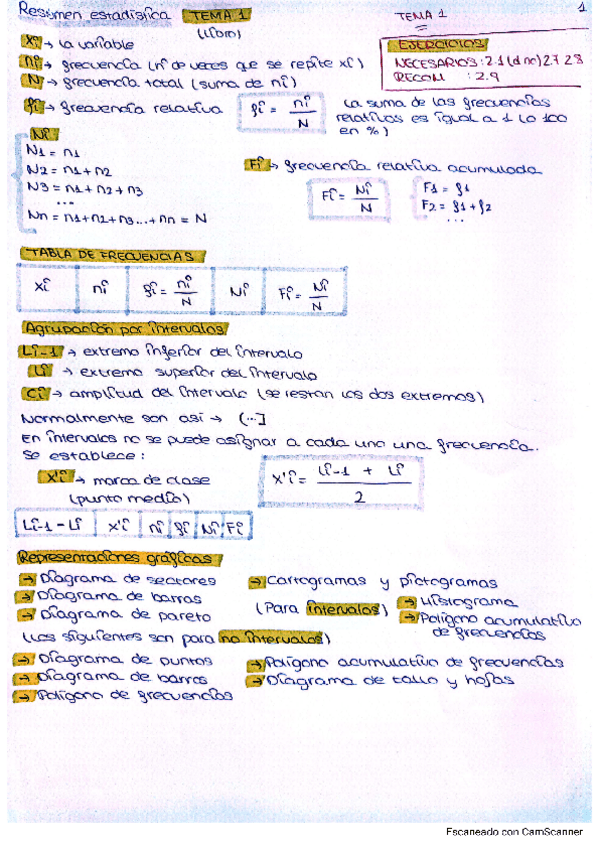 Resumen estadística TEMA 1
(libro)
TEMA 1
1
EJERCICIOS
NECESARIOS: 2.1 (d no) 2.7 2.8
RECOM: 2.9
xi → la variable
ni → frecuencia (nº de veces que se repite xi)
N → frecuencia total (suma de ni)
fi → frecuencia relativa
fi = ni / N
la suma de las frecuencias
relativas es igual a 1 (o 100
en %)
Ni
N1 = n1
N2 = n1 + n2
N3 = n1 + n2 + n3
...
Nn = n1+n2+n3...+nn = N
Fi → frecuencia relativa acumulada
Fi = Ni / N
F1 = f1
F2 = f1 + f2
...
TABLA DE FRECUENCIAS
xi ni fi = ni / N Ni Fi = Ni / N
Agrupación por intervalos
Li-1 → extremo inferior del intervalo
Li → extremo superior del intervalo
Ci → amplitud del intervalo (se restan los dos extremos)
Normalmente son así → (...]
En intervalos no se puede asignar a cada uno una frecuencia.
Se establece:
x'i → marca de clase
(punto medio)
x'i = Li-1 + Li / 2
Li-1 - Li x'i ni fi Ni Fi
Representaciones gráficas
→ Diagrama de sectores
→ Diagrama de barras
→ Diagrama de pareto
→ Cartogramas y pictogramas
(Para intervalos)
→ Histograma
→ Polígono acumulativo
de frecuencias
(Los siguientes son para no intervalos)
→ Diagrama de puntos
→ Diagrama de barras
→ Polígono de frecuencias
→ Polígono acumulativo de frecuencias
→ Diagrama de tallo y hojas
Escaneado con CamScanner